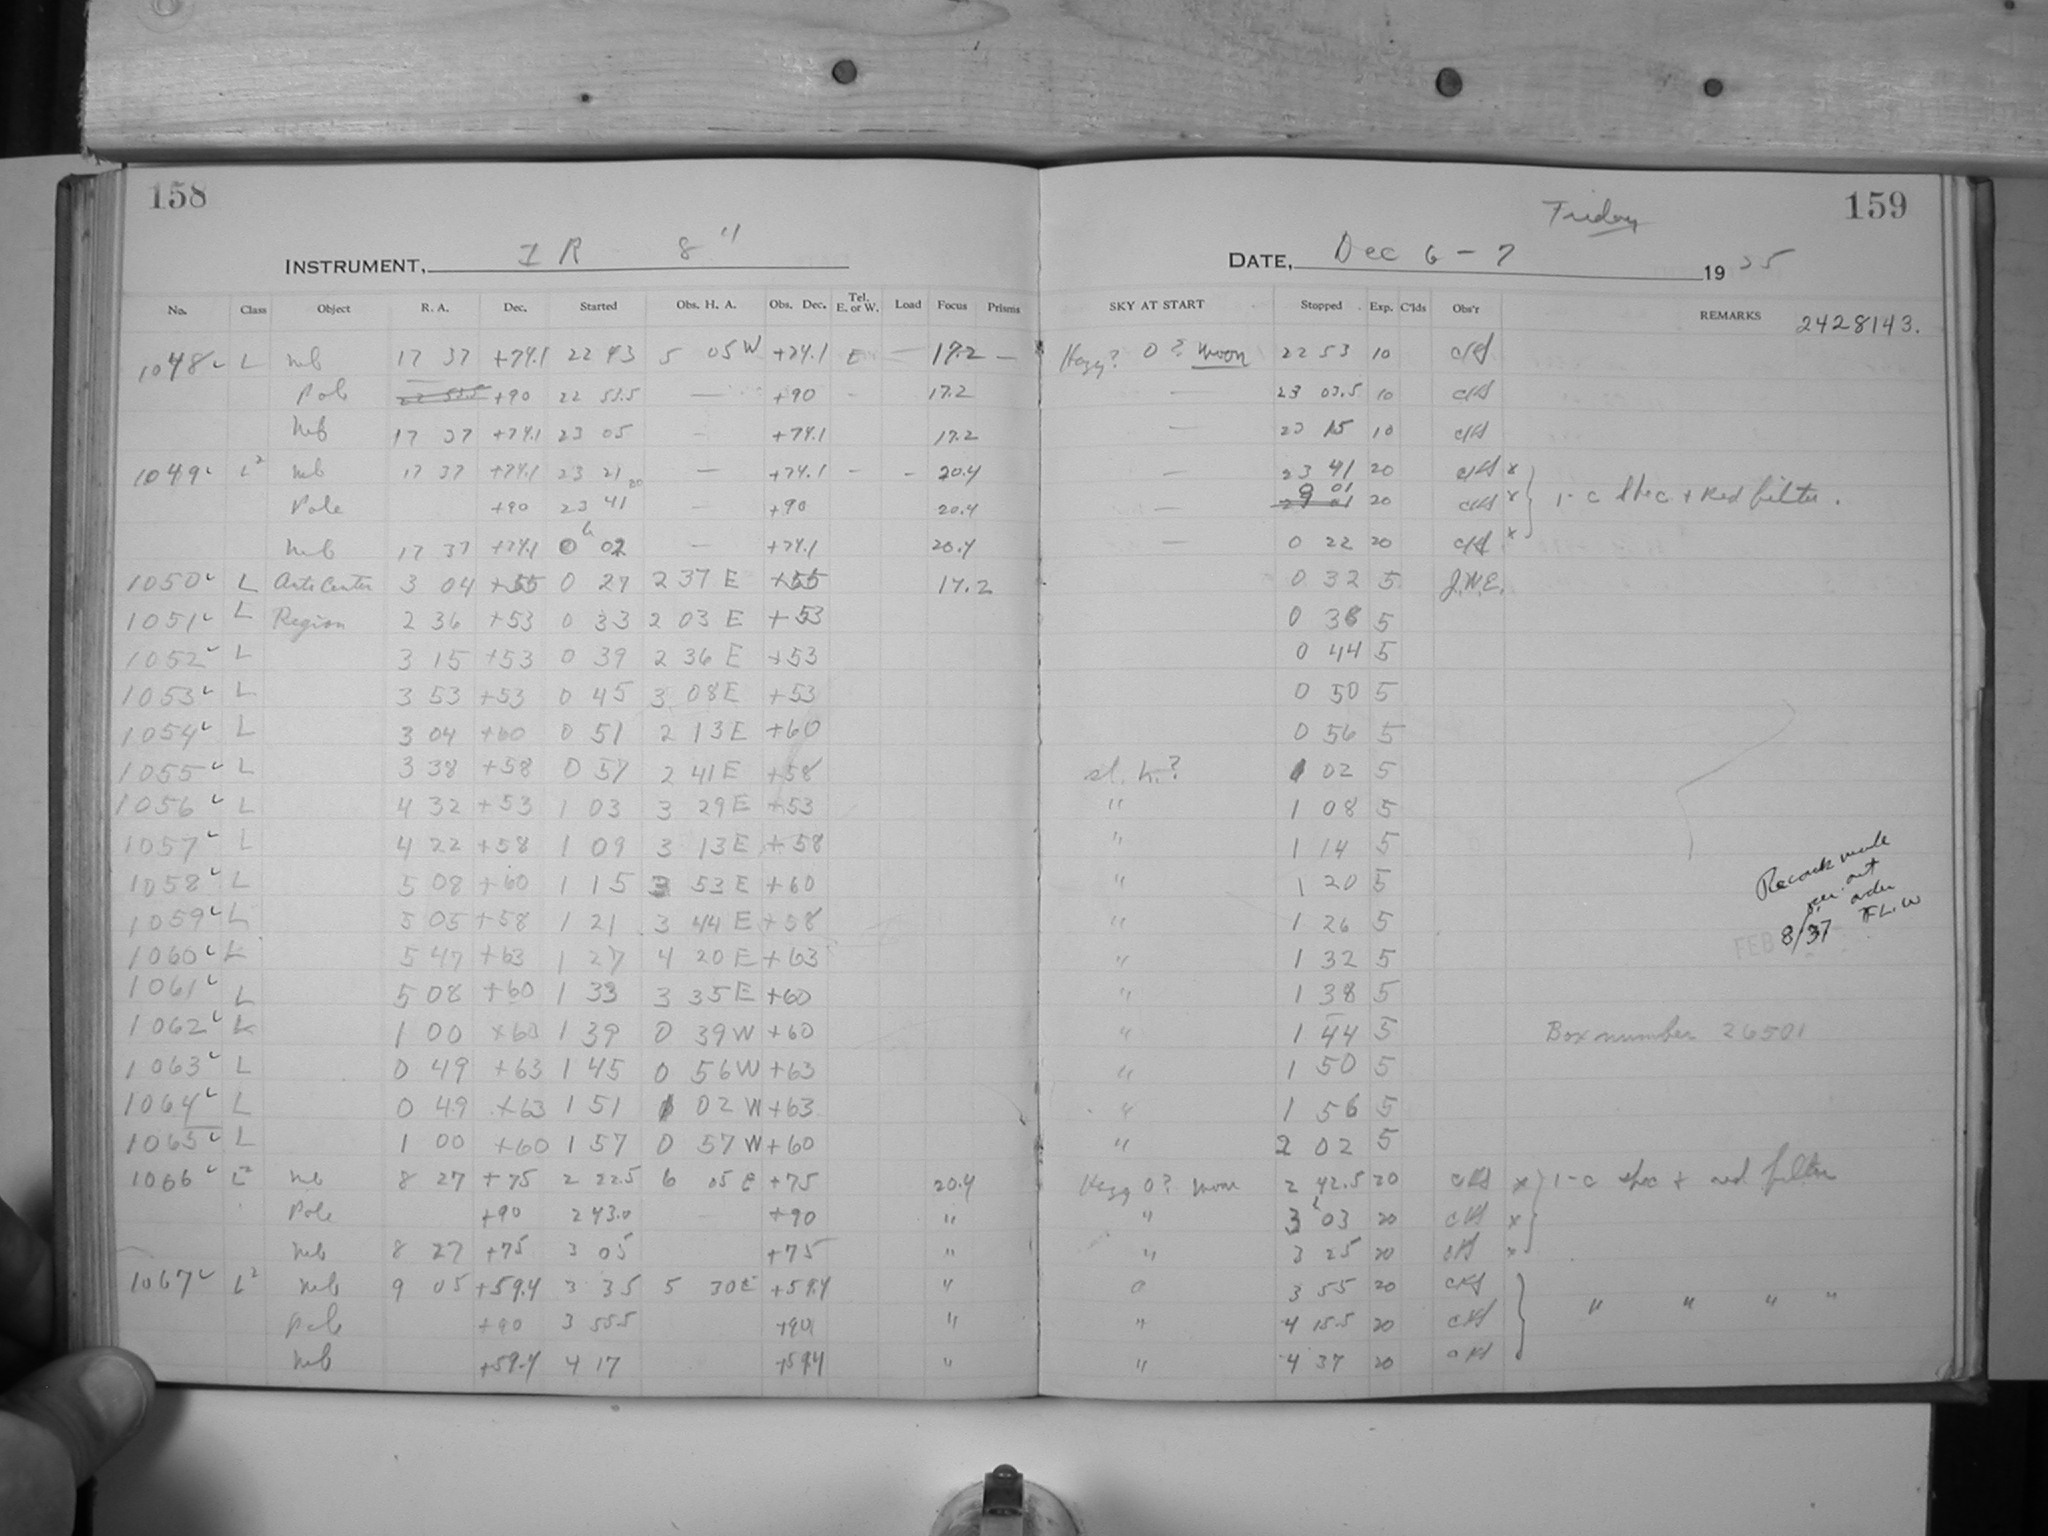 158
159
Friday
INSTRUMENT, I R 8"
DATE, Dec 6 - 7 1935
No. Class Object R. A. Dec. Started Obs. H. A. Obs. Dec. Tel. E. or W. Load Focus Prisms SKY AT START Stopped Exp. C'lds Obs'r REMARKS 2428143.
1048 L 17 37 +74.1 22 43 5 05 W +74.1 E — 17.2 — Hazy? 0? moon 22 53 10
Pole +90 22 53.5 — +90 - 17.2 — 23 03.5 10
17 37 +74.1 23 05 - +74.1 17.2 — 23 15 10
1049 L² 17 37 +74.1 23 21 — +74.1 - - 20.4 — 23 41 20 x
Pole +90 23 41 — +90 20.4 — 0 01 20 x 1-c spec + Red filter.
17 37 +74.1 0 02 — +74.1 20.4 — 0 22 20 x
1050 L 3 04 +55 0 27 2 37 E +55 17.2 0 32 5 J.W.E.
1051 L Region 2 36 +53 0 33 2 03 E +53 0 38 5
1052 L 3 15 +53 0 39 2 36 E +53 0 44 5
1053 L 3 53 +53 0 45 3 08 E +53 0 50 5
1054 L 3 04 +60 0 51 2 13 E +60 0 56 5
1055 L 3 38 +58 0 57 2 41 E +58 sl. h.? 1 02 5
1056 L 4 32 +53 1 03 3 29 E +53 " 1 08 5
1057 L 4 22 +58 1 09 3 13 E +58 " 1 14 5
1058 L 5 08 +60 1 15 3 53 E +60 " 1 20 5
1059 L 5 05 +58 1 21 3 44 E +58 " 1 26 5
1060 L 5 47 +63 1 27 4 20 E +63 " 1 32 5
1061 L 5 08 +60 1 33 3 35 E +60 " 1 38 5
1062 L 1 00 +60 1 39 0 39 W +60 " 1 44 5 Box number 26501
1063 L 0 49 +63 1 45 0 56 W +63 " 1 50 5
1064 L 0 49 +63 1 51 1 02 W +63 " 1 56 5
1065 L 1 00 +60 1 57 0 57 W +60 " 2 02 5
1066 L² 8 27 +75 2 22.5 6 05 E +75 20.4 Hazy 0? moon 2 42.5 20 x 1-c spec + red filter
Pole +90 2 43.0 +90 " " 3 03 20 x
8 27 +75 3 05 +75 " " 3 25 20 x
1067 L² 9 05 +59.4 3 35 5 30 E +59.4 " 0 3 55 20
Pole +90 3 55.5 +90 " " 4 15.5 20 " " " "
+59.4 4 17 +59.4 " " 4 37 20
out
order
FEB 8/37 F.L.W